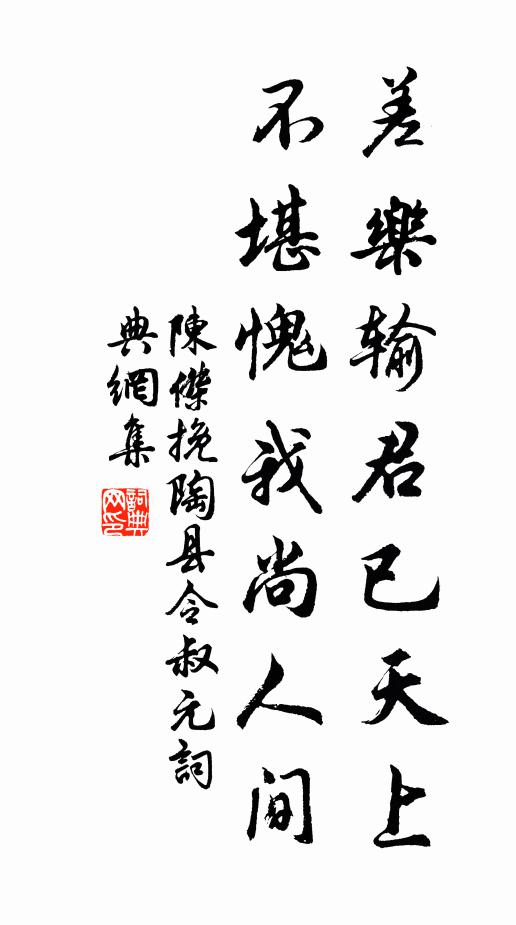 差樂输君已天上
不堪愧我尚人间
陳傑挽陶县令叔元詞
典網集
詞典網印